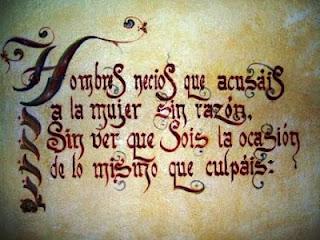 Hombres necios que acusáis
a la mujer sin razón,
Sin ver que Sois la ocasión
de lo mismo que culpáis: